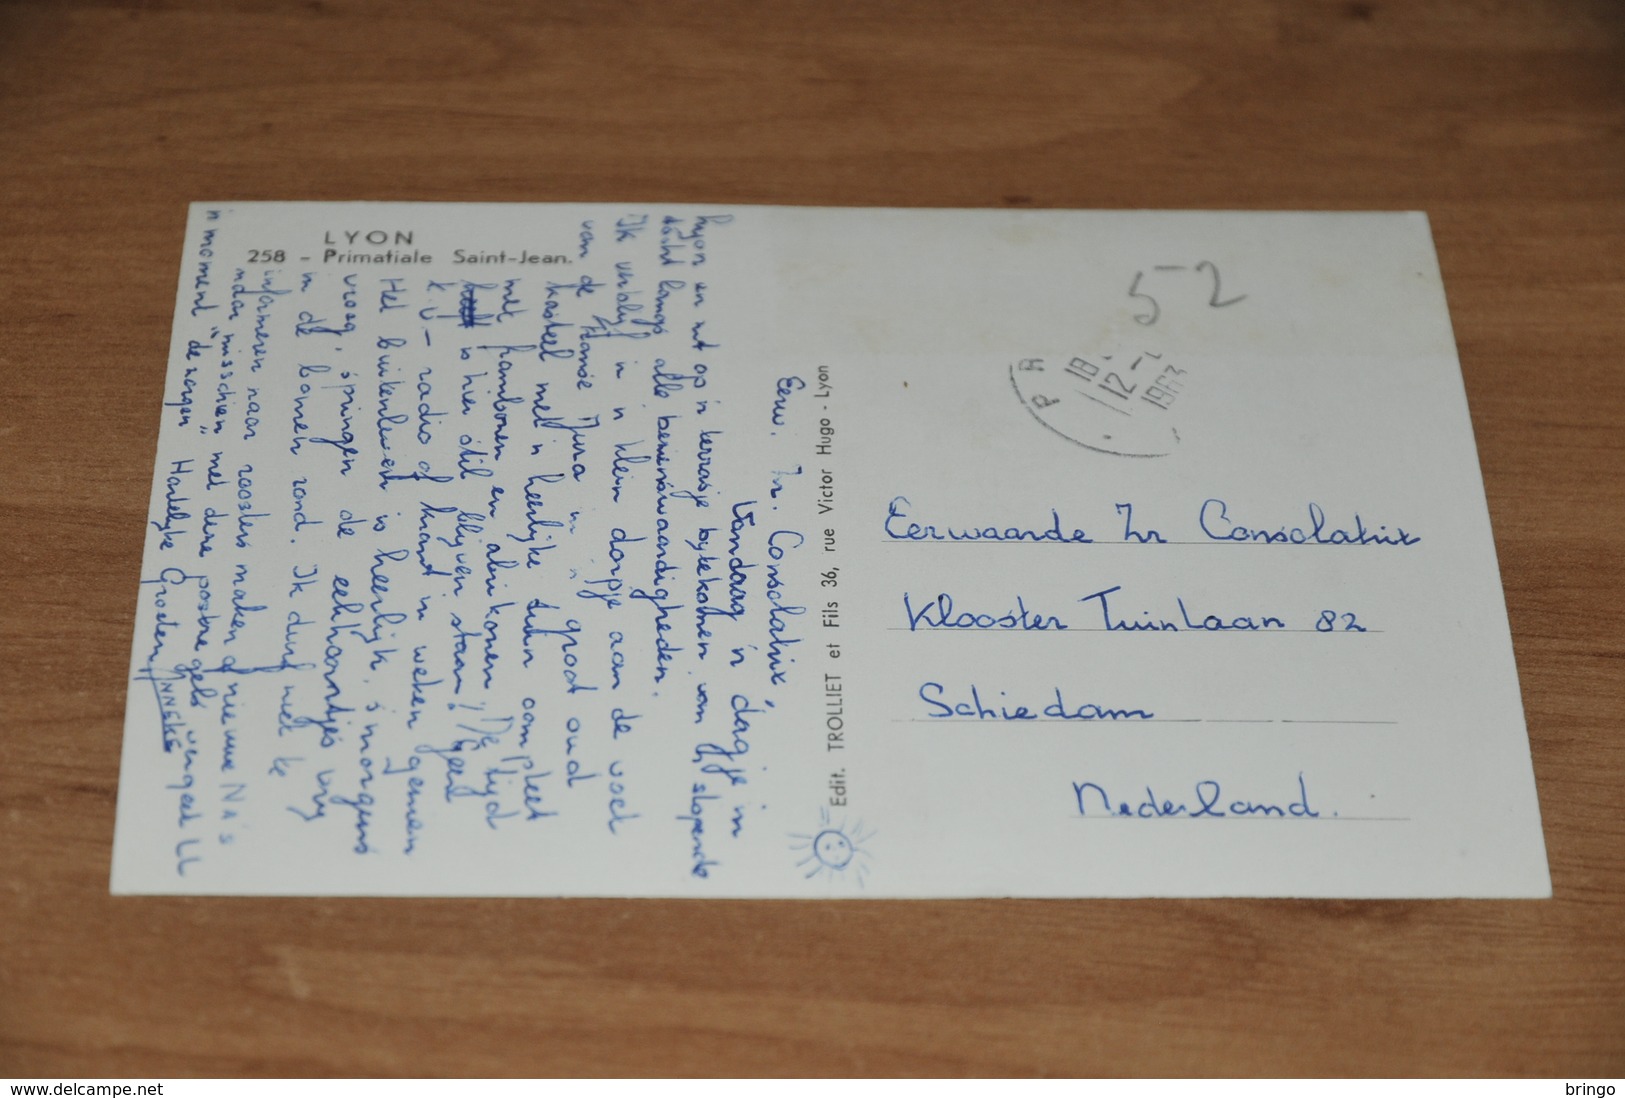 LYON
258 - Primatiale Saint-Jean.
Eerw. Zr. Consolatrix,
Vandaag 'n dagje in
Lyon en nu op 'n terrasje bijtekomen van 'n slopende
tocht langs alle bezienswaardigheden.
Ik verblijf in 'n klein dorpje aan de voet
van de Franse Jura in 'n groot oud
kasteel met 'n heerlijke tuin compleet
met frambozen en abrikozen! De tijd
is hier stil blijven staan! Geen
t.v. - radio of krant in weken gezien
Het buitenleven is heerlijk, 's morgens
vroeg, springen de eekhoorntjes vrij
in de bomen rond. Ik durf niet te
informeren naar roosters maken of nieuwe NA's
maar misschien met deze postzegels vergeet U
'n moment "de zorgen" Hartelijke Groeten,
ANNEKE
Edit. TROLLIET et Fils 36, rue Victor Hugo - Lyon
52
18
12 -
1963
Eerwaarde Zr Consolatrix
Klooster Tuinlaan 82
Schiedam
Nederland.
www.delcampe.net
bringo